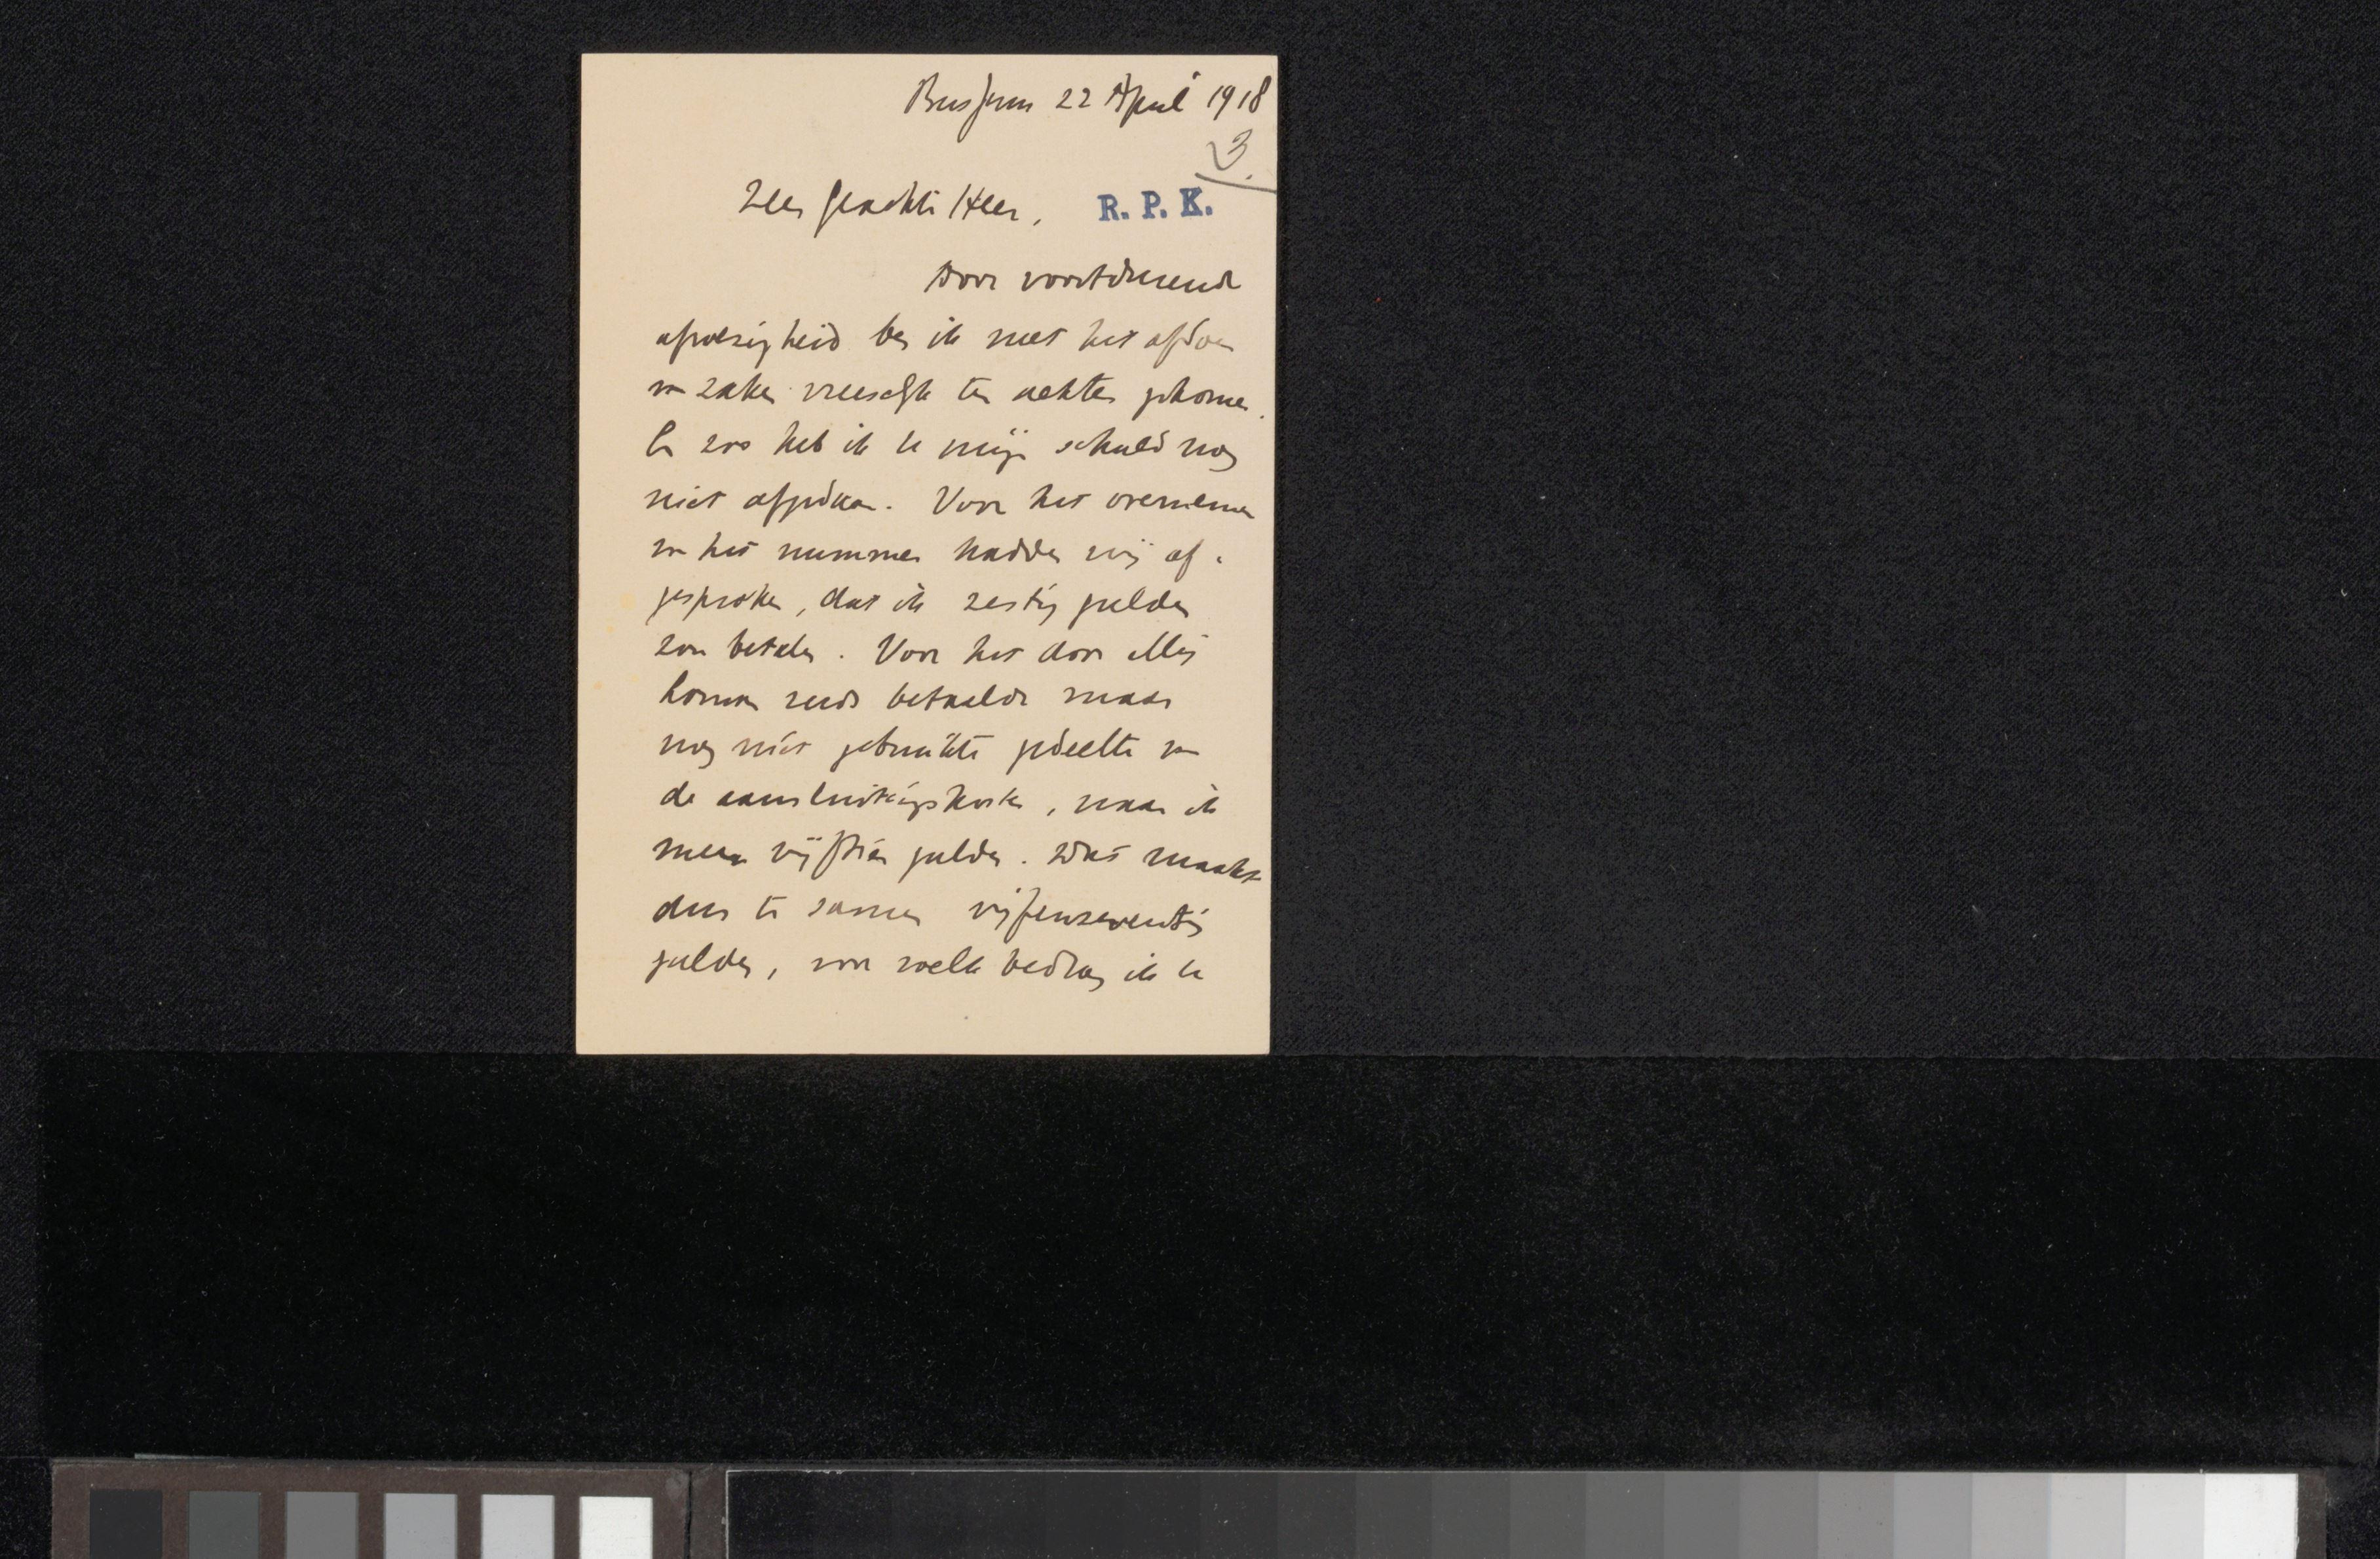 Bussum 22 April 1918
3.
Zeer Geachte Heer, R. P. K.
Door voortdurende
afwezigheid ben ik met het afdoen
van zaken vreeselijk ten achter gekomen.
En zoo heb ik u mijn schuld nog
niet afgedaan. Voor het overnemen
van het nummer hadden wij af-
gesproken, dat ik zestig gulden
zou betalen. Voor het door
reeds betaalde maar
nog niet gebruikte gedeelte van
de aansluitingskosten, naar ik
meen vijftien gulden. Dat maakt
dus te samen vijfenzeventig
gulden, voor welk bedrag ik u